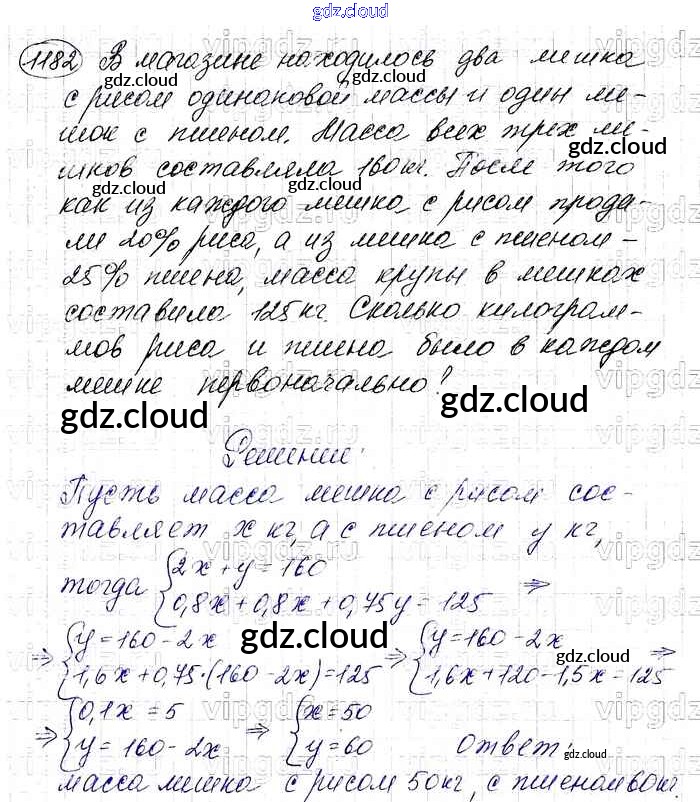 gdz.cloud
1182 В магазине находилось два мешка
с рисом одинаковой массы и один ме-
шок с пшеном. Масса всех трех ме-
шков составляла 160 кг. После того
как из каждого мешка с рисом прода-
ли 20% риса, а из мешка с пшеном -
25% пшена, масса крупы в мешках
составила 125 кг. Сколько килограм-
мов риса и пшена было в каждом
мешке первоначально?
gdz.cloud gdz.cloud
Решение:
Пусть масса мешка с рисом сос-
тавляет x кг, а с пшеном y кг,
тогда { 2x + y = 160
0,8x + 0,8x + 0,75y = 125 ⇒
⇒ { y = 160 - 2x ⇒ { y = 160 - 2x
1,6x + 0,75·(160 - 2x) = 125 1,6x + 120 - 1,5x = 125 ⇒
⇒ { 0,1x = 5 ⇒ { x = 50
y = 160 - 2x y = 60 Ответ:
масса мешка с рисом 50 кг, с пшеном 60 кг.